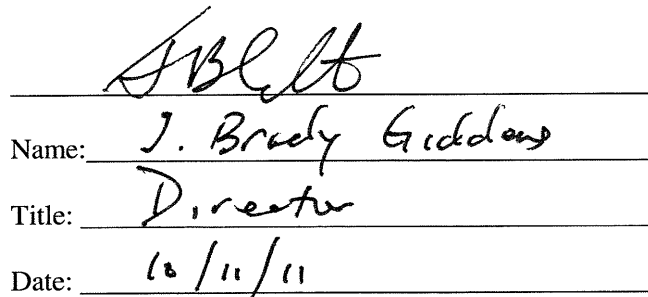 Name: J. Brady Giddens
Title: Director
Date: 10/11/11